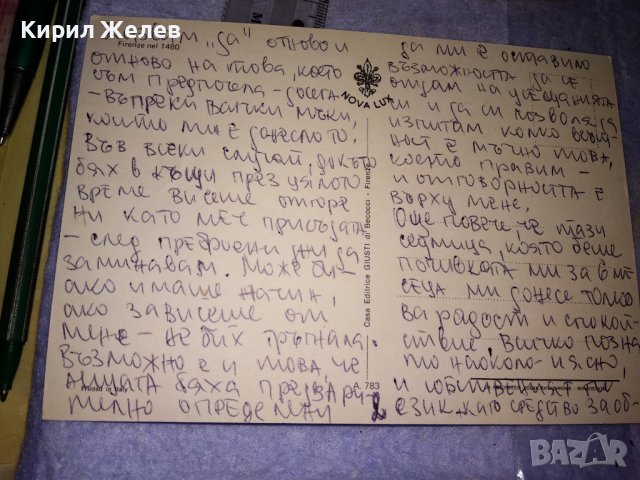 Кирил Желев
Firenze nel 1480
"да" отново и
отново на това, което
съм предпочела - досега
- въпреки всички мъки,
които ми е донесло то.
Във всеки случай, докато
бях в къщи през цялото
време висеше отгоре
ми като меч присъдата
- след преброени дни да
заминавам. Може би -
ако имаше начин,
ако зависеше от
мене - не бих тръгнала.
Възможно е и това, че
бяха предвари-
телно определени
Printed in Italy
NOVA LUX
Casa Editrice GIUSTI di Becocci - Firenze
A. 783
2
да ми е оставило
възможността да се
отдам на усещанията
си и да си позволя да
изпитам колко всъщ-
ност е мъчно това,
което правим -
и отговорността е
върху мене.
Още повече, че тази
седмица, която беше
почивката ми за 8 ме-
сеца ми донесе толко-
ва радост и спокой-
ствие, всичко позна-
то наоколо и ясно,
и
език като средство за об-
BAZAR